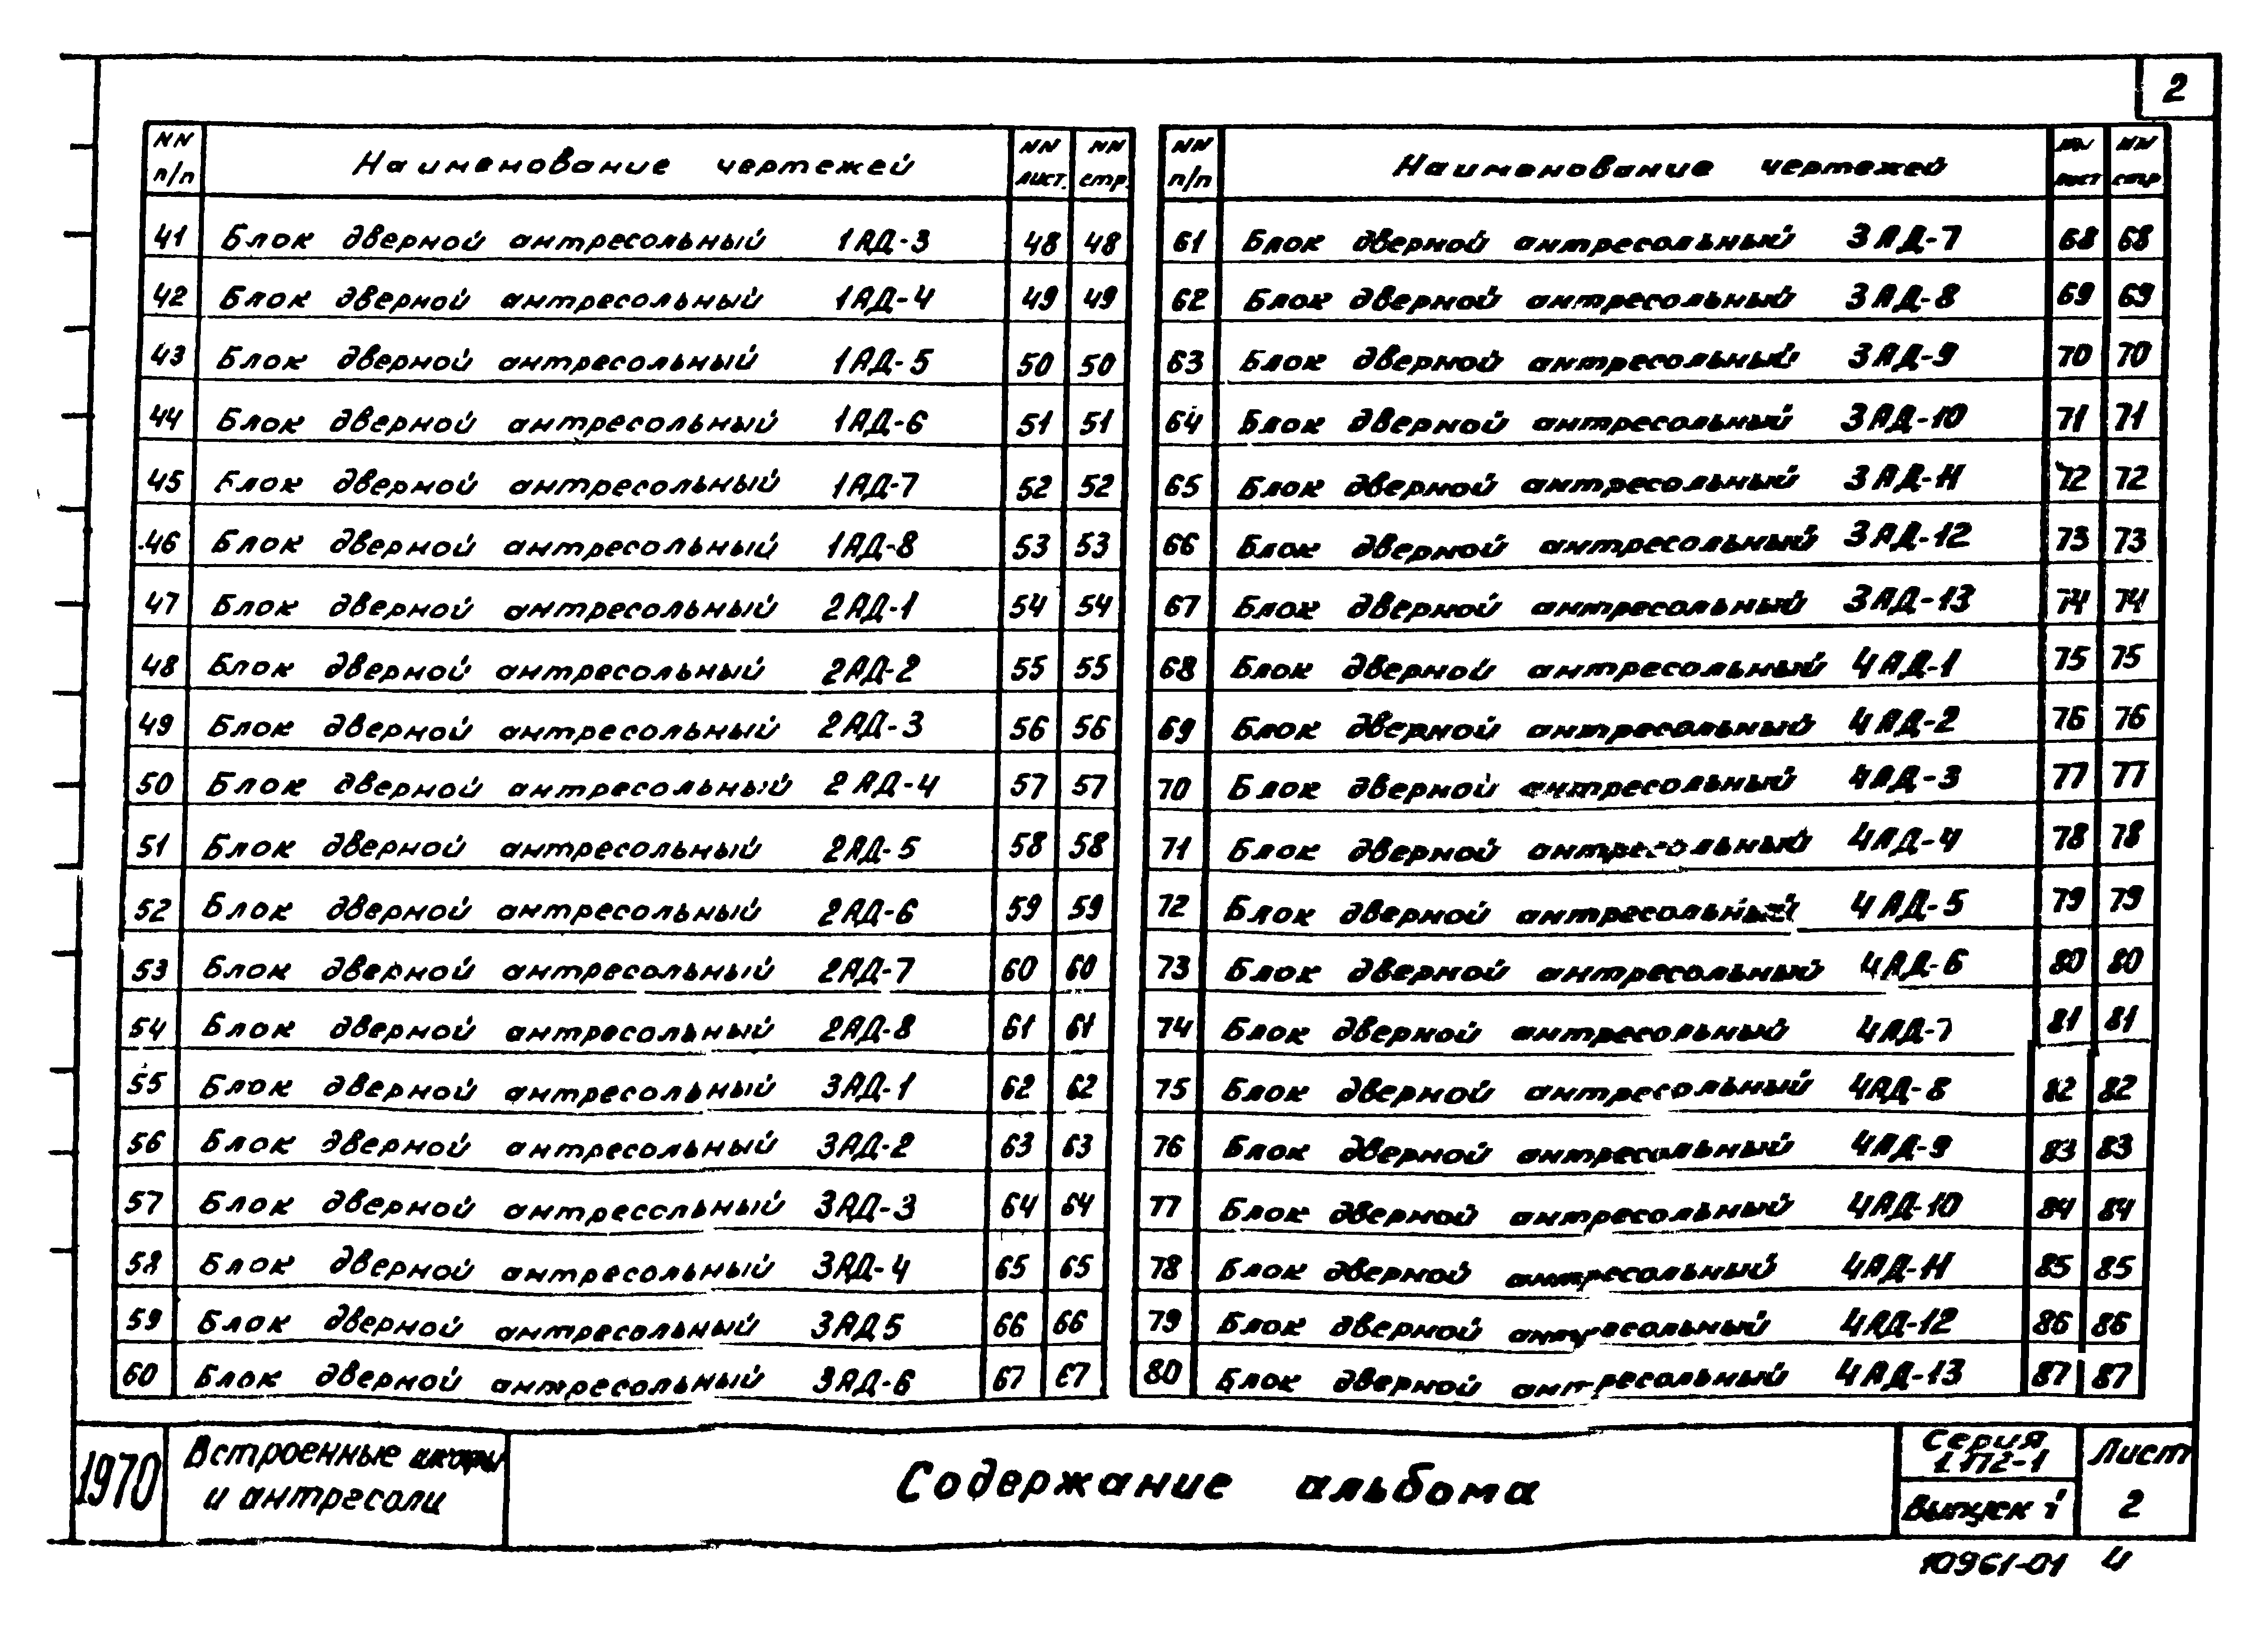 2
NN п/п Наименование чертежей NN лист. NN стр.
41 Блок дверной антресольный 1АД-3 48 48
42 Блок дверной антресольный 1АД-4 49 49
43 Блок дверной антресольный 1АД-5 50 50
44 Блок дверной антресольный 1АД-6 51 51
45 Блок дверной антресольный 1АД-7 52 52
46 Блок дверной антресольный 1АД-8 53 53
47 Блок дверной антресольный 2АД-1 54 54
48 Блок дверной антресольный 2АД-2 55 55
49 Блок дверной антресольный 2АД-3 56 56
50 Блок дверной антресольный 2АД-4 57 57
51 Блок дверной антресольный 2АД-5 58 58
52 Блок дверной антресольный 2АД-6 59 59
53 Блок дверной антресольный 2АД-7 60 60
54 Блок дверной антресольный 2АД-8 61 61
55 Блок дверной антресольный 3АД-1 62 62
56 Блок дверной антресольный 3АД-2 63 63
57 Блок дверной антресольный 3АД-3 64 64
58 Блок дверной антресольный 3АД-4 65 65
59 Блок дверной антресольный 3АД5 66 66
60 Блок дверной антресольный 3АД-6 67 67
NN п/п Наименование чертежей NN лист NN стр
61 Блок дверной антресольный 3АД-7 68 68
62 Блок дверной антресольный 3АД-8 69 69
63 Блок дверной антресольный 3АД-9 70 70
64 Блок дверной антресольный 3АД-10 71 71
65 Блок дверной антресольный 3АД-11 72 72
66 Блок дверной антресольный 3АД-12 73 73
67 Блок дверной антресольный 3АД-13 74 74
68 Блок дверной антресольный 4АД-1 75 75
69 Блок дверной антресольный 4АД-2 76 76
70 Блок дверной антресольный 4АД-3 77 77
71 Блок дверной антресольный 4АД-4 78 78
72 Блок дверной антресольный 4АД-5 79 79
73 Блок дверной антресольный 4АД-6 80 80
74 Блок дверной антресольный 4АД-7 81 81
75 Блок дверной антресольный 4АД-8 82 82
76 Блок дверной антресольный 4АД-9 83 83
77 Блок дверной антресольный 4АД-10 84 84
78 Блок дверной антресольный 4АД-11 85 85
79 Блок дверной антресольный 4АД-12 86 86
80 Блок дверной антресольный 4АД-13 87 87
1970
Встроенные шкафы
и антресоли
Содержание альбома
Серия
1.172-1
Выпуск 1
Лист
2
10961-01 4